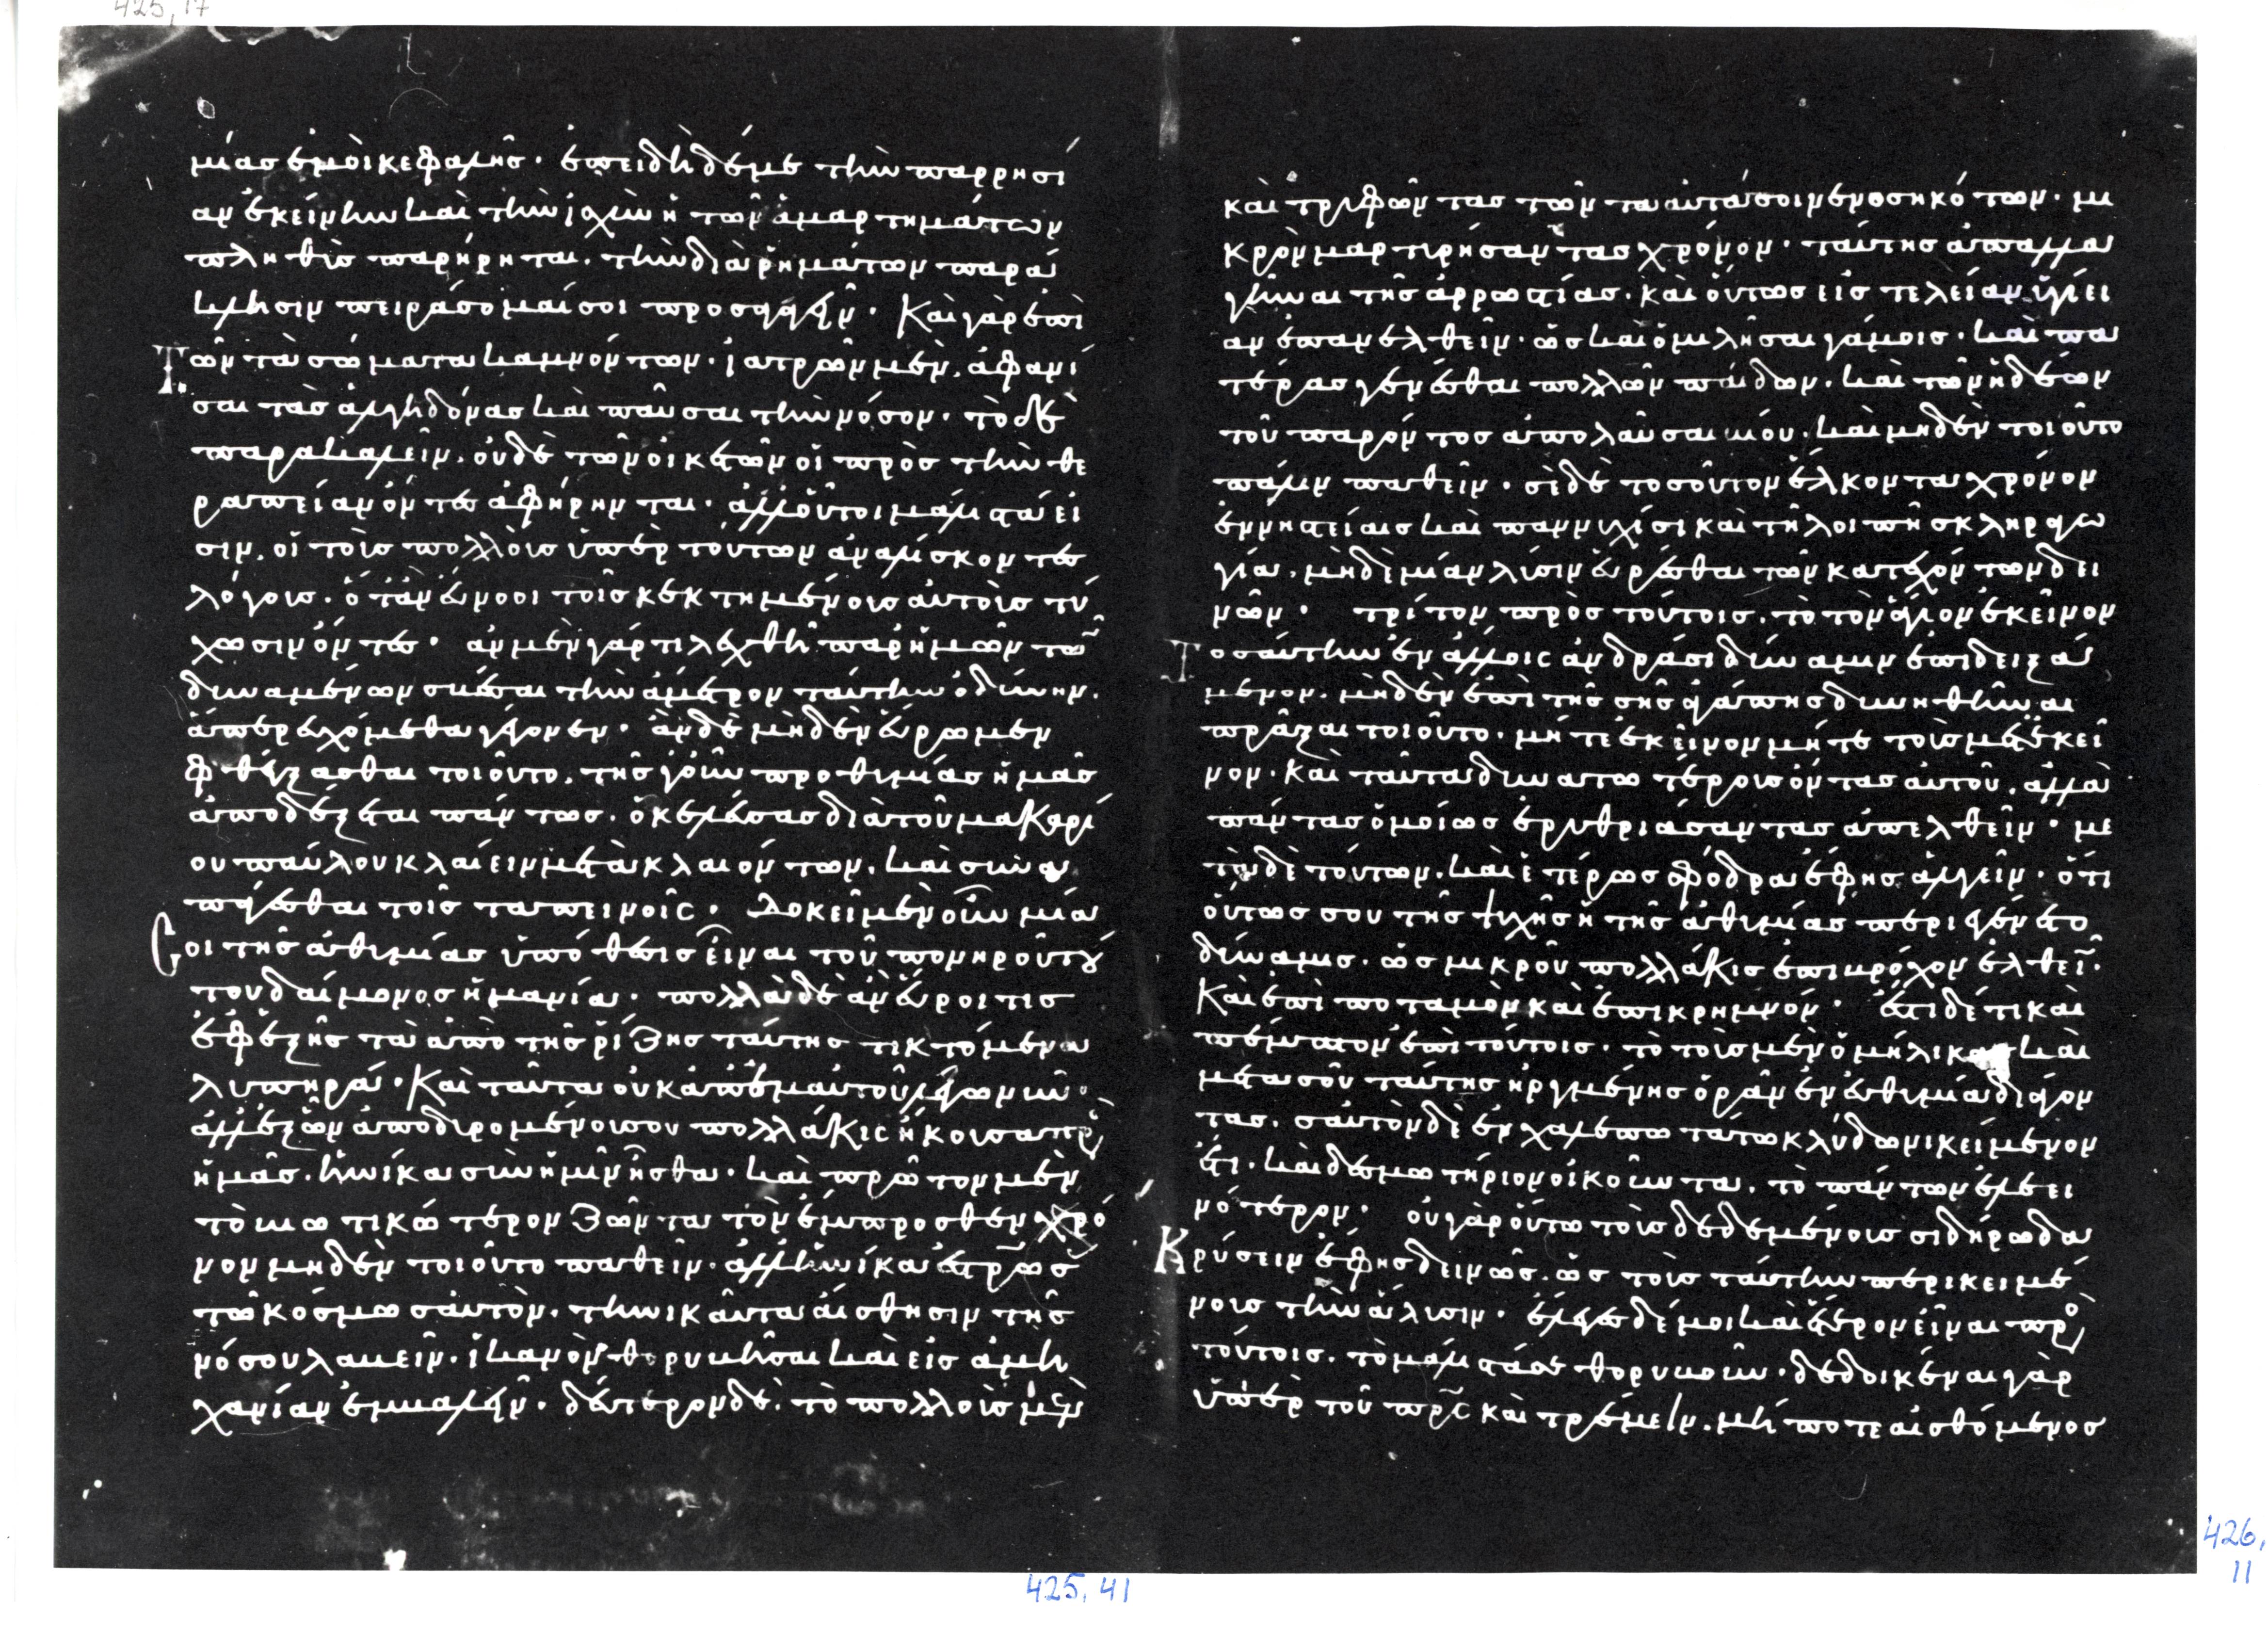 425, 17
μίας ἐμοὶ κεφαλῆς. ἐπειδὴ δέ με τὴν παρρησί
αν ἐκείνην καὶ τὴν ἰσχὺν ἢ τῶν ἁμαρτημάτων
πληθὺς παρήρηται. τὴν διὰ ῥημάτων παρά
κλησιν πειράσομαί σοι προσαγαγεῖν. Καὶ γὰρ ἐπὶ
Τῶν τὰ σώματα καμνόντων. ἰατρῶν μὲν, ἀφανί
σαι τὰς ἀλγηδόνας καὶ παῦσαι τὴν νόσον. τὸ δὲ
παρακαλεῖν. οὐδὲ τῶν οἰκετῶν οἱ πρὸς τὴν θε
ραπείαν ὄντες ἀφήρηνται. ἀλλ' οὗτοι μάλιστά εἰ
σιν. οἱ τοῖς πολλοῖς ὑπὲρ τούτων ἀναλίσκοντες
λόγοις. ὅταν εὖνοοι τοῖς κεκτημένοις αὐτοῖς τύ
χωσιν ὄντες. ἂν μὲν γάρ τι λεχθῆ παρ' ἡμῶν τῶν
δυναμένων σβέσαι τὴν ἄμετρον ταύτην ὀδύνην.
ἅπερ εὐχόμεθα γέγονεν. ἂν δὲ μηδὲν εὕρωμεν
φθέγξασθαι τοιοῦτο. τῆς γοῦν προθυμίας ἡμᾶς
ἀποδέξεται πάντως. ὁ κελεύσας διὰ τοῦ μακαρί
ου παύλου κλαίειν μετὰ κλαιόντων. καὶ συνα
πάγεσθαι τοῖς ταπεινοῖς. Δοκεῖ μὲν οὖν μία
Σοι τῆς ἀθυμίας ὑπόθεσις εἶναι τοῦ πονηροῦ τού
του δαίμονος ἡ μανία. πολλὰ δὲ ἂν εὕροι τις
ἐφεξῆς τὰ ἀπὸ τῆς ῥίζης ταύτης τικτόμενα
λυπηρά. Καὶ ταῦτα οὐκ ἀπ' ἐμαυτοῦ λέγω νῦν.
ἀλλ' ἐξ ὧν ἀποδυρομένου σου πολλάκις ἤκουσα πρὸς
ἡμᾶς. ἡνίκα σὺν ἡμῖν ἦσθα. καὶ πρῶτον μὲν
τὸ βιωτικώτερον ζῶντα τὸν ἔμπροσθεν χρό
νον μηδὲν τοιοῦτο παθεῖν. ἀλλ' ἡνίκα ἐσταύρωσας
τῶ κόσμω σαυτόν. τηνικαῦτα αἴσθησιν τῆς
νόσου λαβεῖν. ἱκανὸν θορυβῆσαι καὶ εἰς ἀμη
χανίαν ἐμβαλεῖν. δεύτερον δὲ. τὸ πολλοὺς μὲν
425, 41
καὶ τρυφῶντας τῶν τὰ αὐτά σοι νενοσηκότων. μι
κρὸν μαρτυρήσαντας χρόνον. ταύτης ἀπαλλα
γῆναι τῆς ἀρρωστίας. καὶ οὕτως εἰς τελείαν ὑγίει
αν ἐπανελθεῖν. ὡς καὶ ὁμιλῆσαι γάμοις. καὶ πα
τέρας γενέσθαι πολλῶν παίδων. καὶ τῶν ἡδέων
τοῦ παρόντος ἀπολαῦσαι βίου. καὶ μηδὲν τοιοῦτο
πάλιν παθεῖν. σὲ δὲ τοσοῦτον ἕλκοντα χρόνον
ἐν νηστείαις καὶ παννυχίσι καὶ τῆ λοιπῆ σκληραγω
γία. μηδεμίαν λύσιν εὑρέσθαι τῶν κατεχόντων δει
νῶν. τρίτον πρὸς τούτοις. τὸ τὸν ἅγιον ἐκεῖνον
Τοσαύτην ἐν ἄλλοις ἀνδράσι δύναμιν ἐπιδειξά
μενον. μηδὲν ἐπὶ τῆς σῆς ἀγάπης δυνηθῆναι
πρᾶξαι τοιοῦτο. μήτε ἐκεῖνον μήτε τοὺς μετ' ἐκεῖ
νον. Καὶ ταῦτα δυνατωτέρους ὄντας αὐτοῦ. ἀλλὰ
πάντας ὁμοίως ἐρυθριάσαντας ἀπελθεῖν. με
τὰ δὲ τούτων. καὶ ἑτέρως σφόδρα ἔφης ἀλγεῖν. ὅτι
οὕτως σου τῆς ψυχῆς ἡ τῆς ἀθυμίας περιεγένετο
δύναμις. ὡς μικροῦ πολλάκις ἐπὶ βρόχον ἐλθεῖν.
Καὶ ἐπὶ ποταμὸν καὶ ἐπὶ κρημνόν. ἔστι δέ τι καὶ
πέμπτον ἐπὶ τούτοις. τὸ τοὺς μὲν ὁμήλικας καὶ
μετὰ σοῦ ταύτης ἠργμένης ὁρᾶν ἐν εὐθυμία διάγον
τας. σαυτὸν δὲ ἐν χαλεπωτάτω κλύδωνι κείμενον
ἔτι. καὶ δεσμωτήριον οἰκοῦντα. τὸ πάντων ἐλεει
νότερον. οὐ γὰρ οὕτω τοὺς δεδεμένους σιδήρω δα
Κρύειν ἔφης δεινῶς. ὡς τοὺς ταύτην περικειμέ
νους τὴν ἅλυσιν. ἔλεγες δέ μοι καὶ ἕτερον εἶναι πρὸς
τούτοις. τὸ μάλιστά σε θορυβοῦν. δεδοικέναι γὰρ
ὑπὲρ τοῦ πρς καὶ τρέμειν. μή ποτε αἰσθόμενος
426,
11